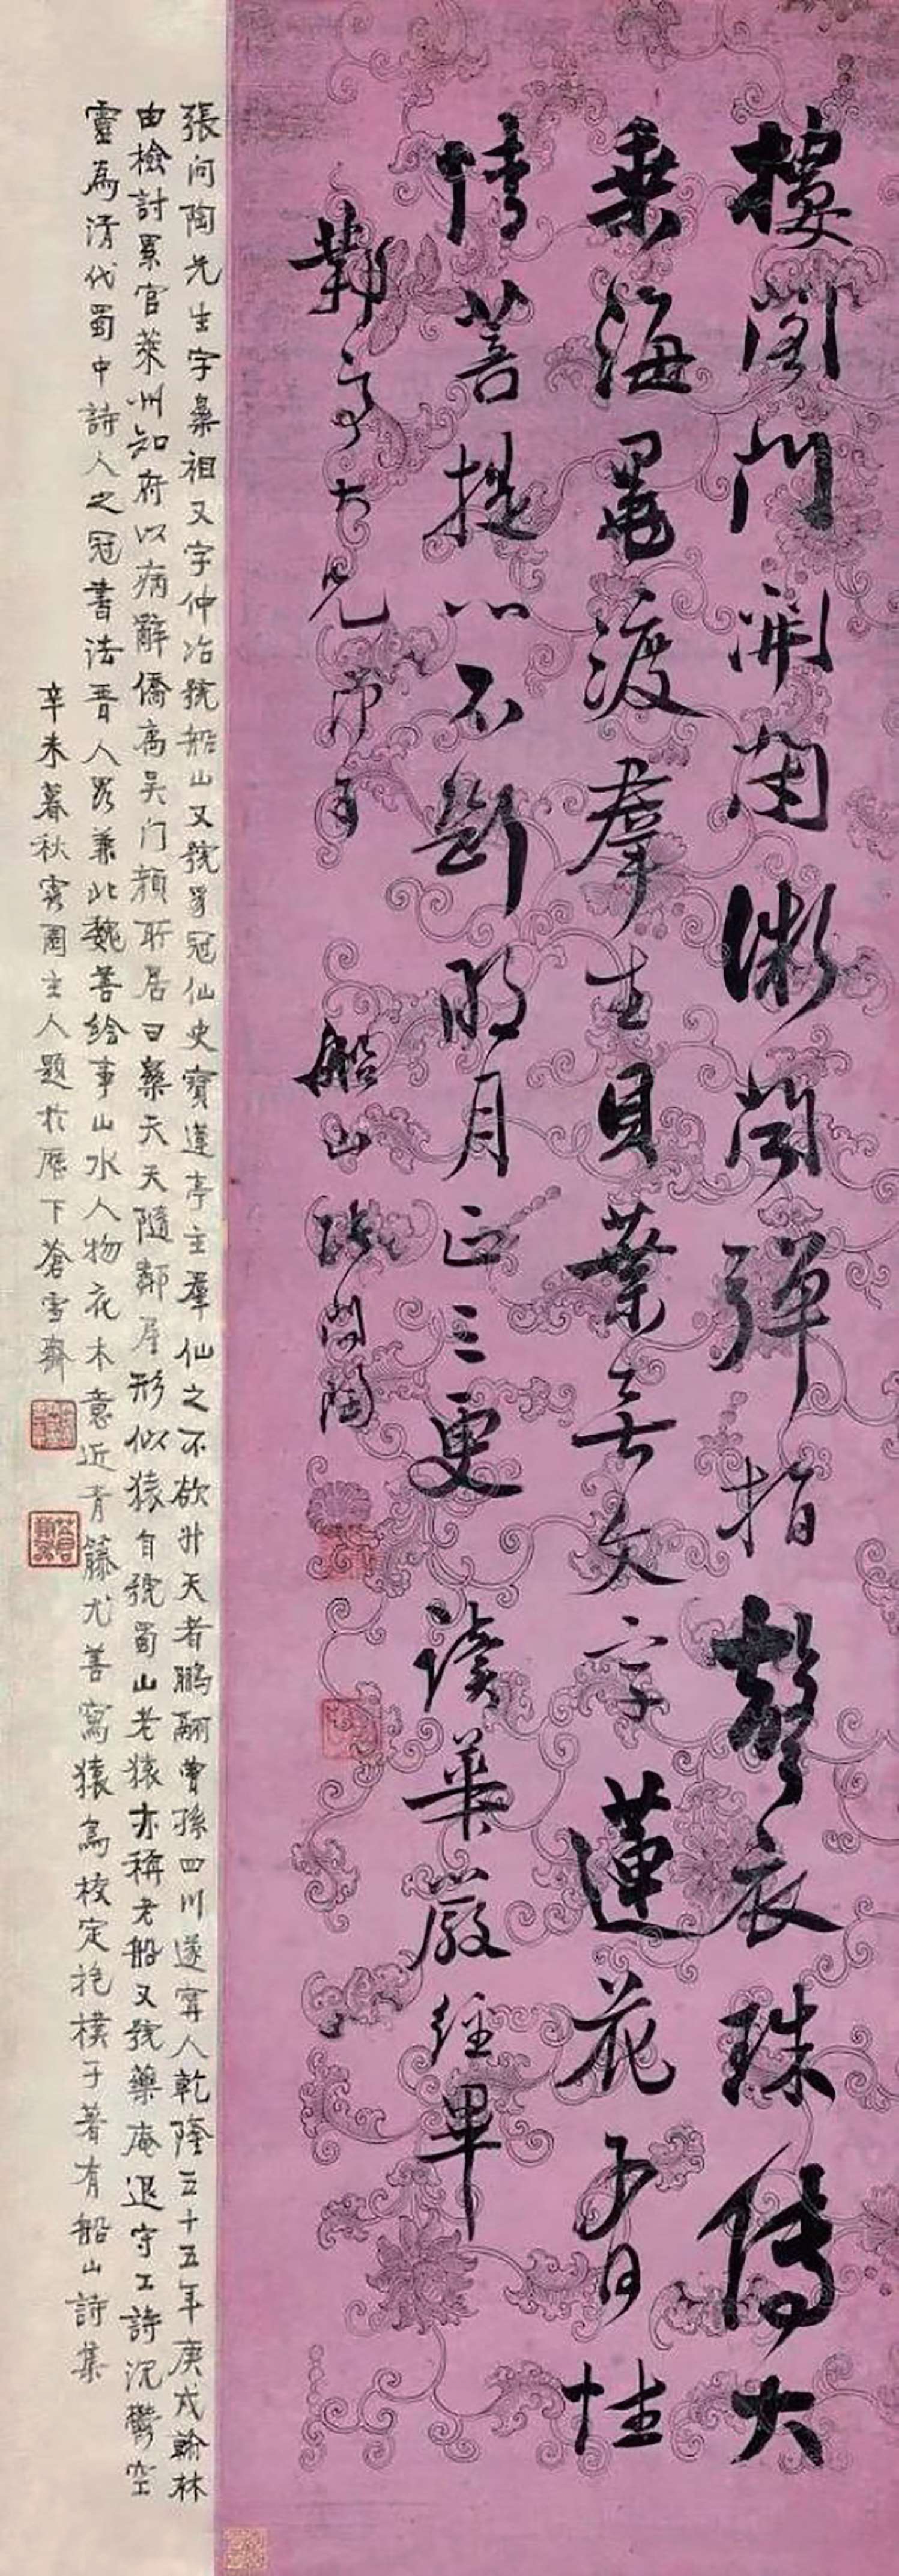 樓閣門開閉衆聞彈指聲衣珠傳大
乘海墨渡羣生貝葉無文字蓮花有性
情菩提心不斷明月正三更 讀華嚴經畢
鄴亭大兄 船山張問陶
張問陶先生字樂祖又字仲冶號船山又號豸冠仙史寶蓮亭主羣仙之不欲升天者鵬翮曾孫四川遂寧人乾隆五十五年庚戌翰林
由檢討累官萊州知府以病辭僑寓吳门顏所居曰樂天天隨鄰屋形似猿自號蜀山老猿亦稱老船又號藥庵退守工詩沉鬱空
靈為清代蜀中詩人之冠書法晋人兼北魏善繪事山水人物花木意近青籐尤善寫猿為校定抱樸子著有船山詩集
辛未暮秋雲園主人題於歷下蒼雪齋